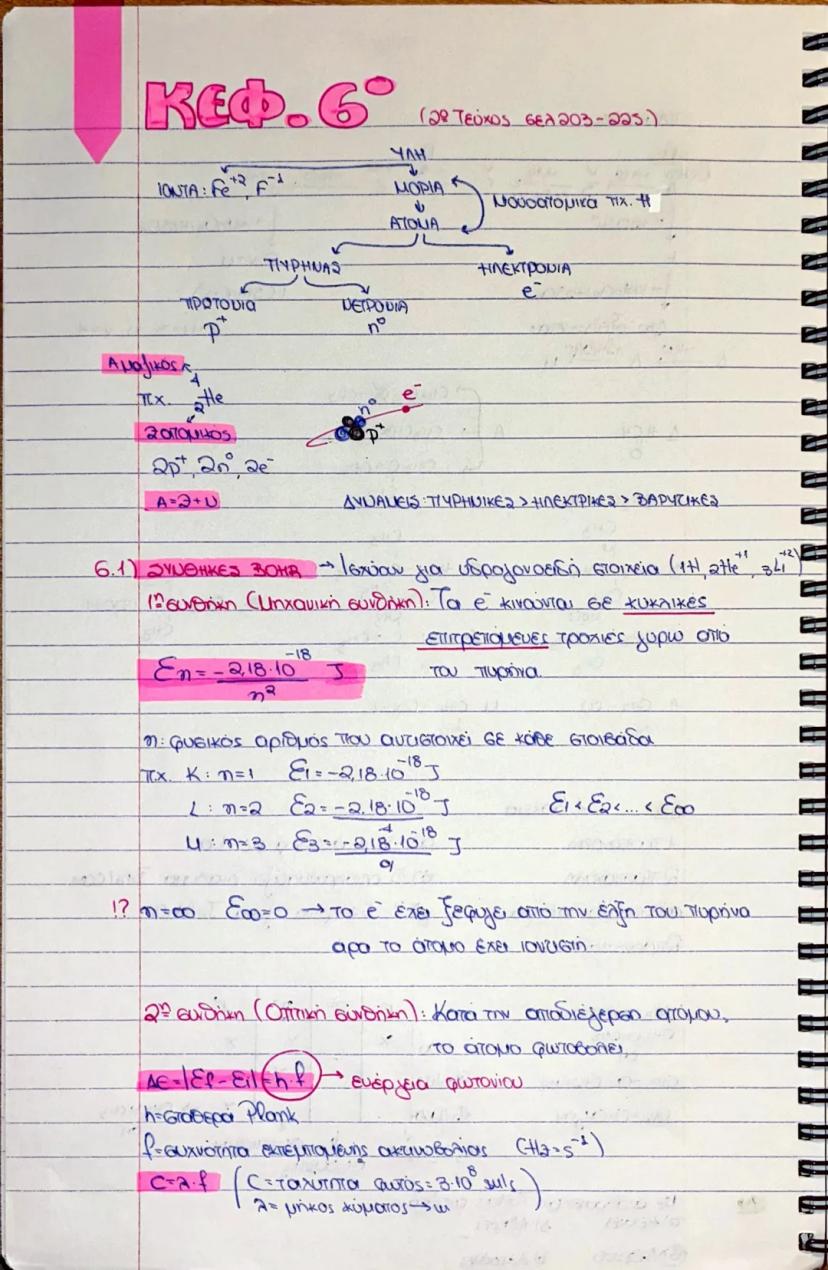 ΚΕΦ. 6° (2ο Τεύχος σελ 203-225.)
ΥΛΗ
ΙΟΝΤΑ: Fe⁺², F⁻¹ ΜΟΡΙΑ Μονοατομικά πχ. H
ΑΤΟΜΑ
ΠΥΡΗΝΑΣ ΗΛΕΚΤΡΟΝΙΑ
e⁻
ΠΡΩΤΟΝΙΑ ΝΕΤΡΟΝΙΑ
p⁺ n⁰
Α μαζικός
πχ. ⁴₂He n⁰ e⁻
Ζ ατομικός p⁺
2p⁺, 2n⁰, 2e⁻
Α=Ζ+Ν ΔΥΝΑΜΕΙΣ: ΠΥΡΗΝΙΚΕΣ > ΗΛΕΚΤΡΙΚΕΣ > ΒΑΡΥΤΙΚΕΣ
6.1) ΣΥΝΘΗΚΕΣ BOHR → Ισχύουν για υδρογονοειδή στοιχεία (₁H, ₂He⁺¹, ₃Li⁺²)
1η συνθήκη (Μηχανική συνθήκη): Τα e⁻ κινούνται σε κυκλικές
επιτρεπόμενες τροχιές γύρω από
τον πυρήνα.
En = -2,18·10⁻¹⁸/n² J
n: φυσικός αριθμός που αντιστοιχεί σε κάθε στοιβάδα
πχ. K: n=1 E1=-2,18·10⁻¹⁸ J
L: n=2 E2=-2,18·10⁻¹⁸/4 J E1 < E2 < ... < E∞
M: n=3 E3=-2,18·10⁻¹⁸/9 J
!? n=∞ E∞=0 → το e⁻ έχει ξεφύγει από την έλξη του πυρήνα
άρα το άτομο έχει ιοντιστή
2η συνθήκη (Οπτική συνθήκη): Κατά την αποδιέγερση ατόμου,
το άτομο φωτοβολεί.
ΔΕ=|Ef-Ei|=h·f → ενέργεια φωτονίου
h=σταθερά Plank
f=συχνότητα εκπεμπόμενης ακτινοβολίας (Hz=s⁻¹)
C=λ·f (C=ταχύτητα φωτός=3·10⁸ m/s
λ= μήκος κύματος → m)